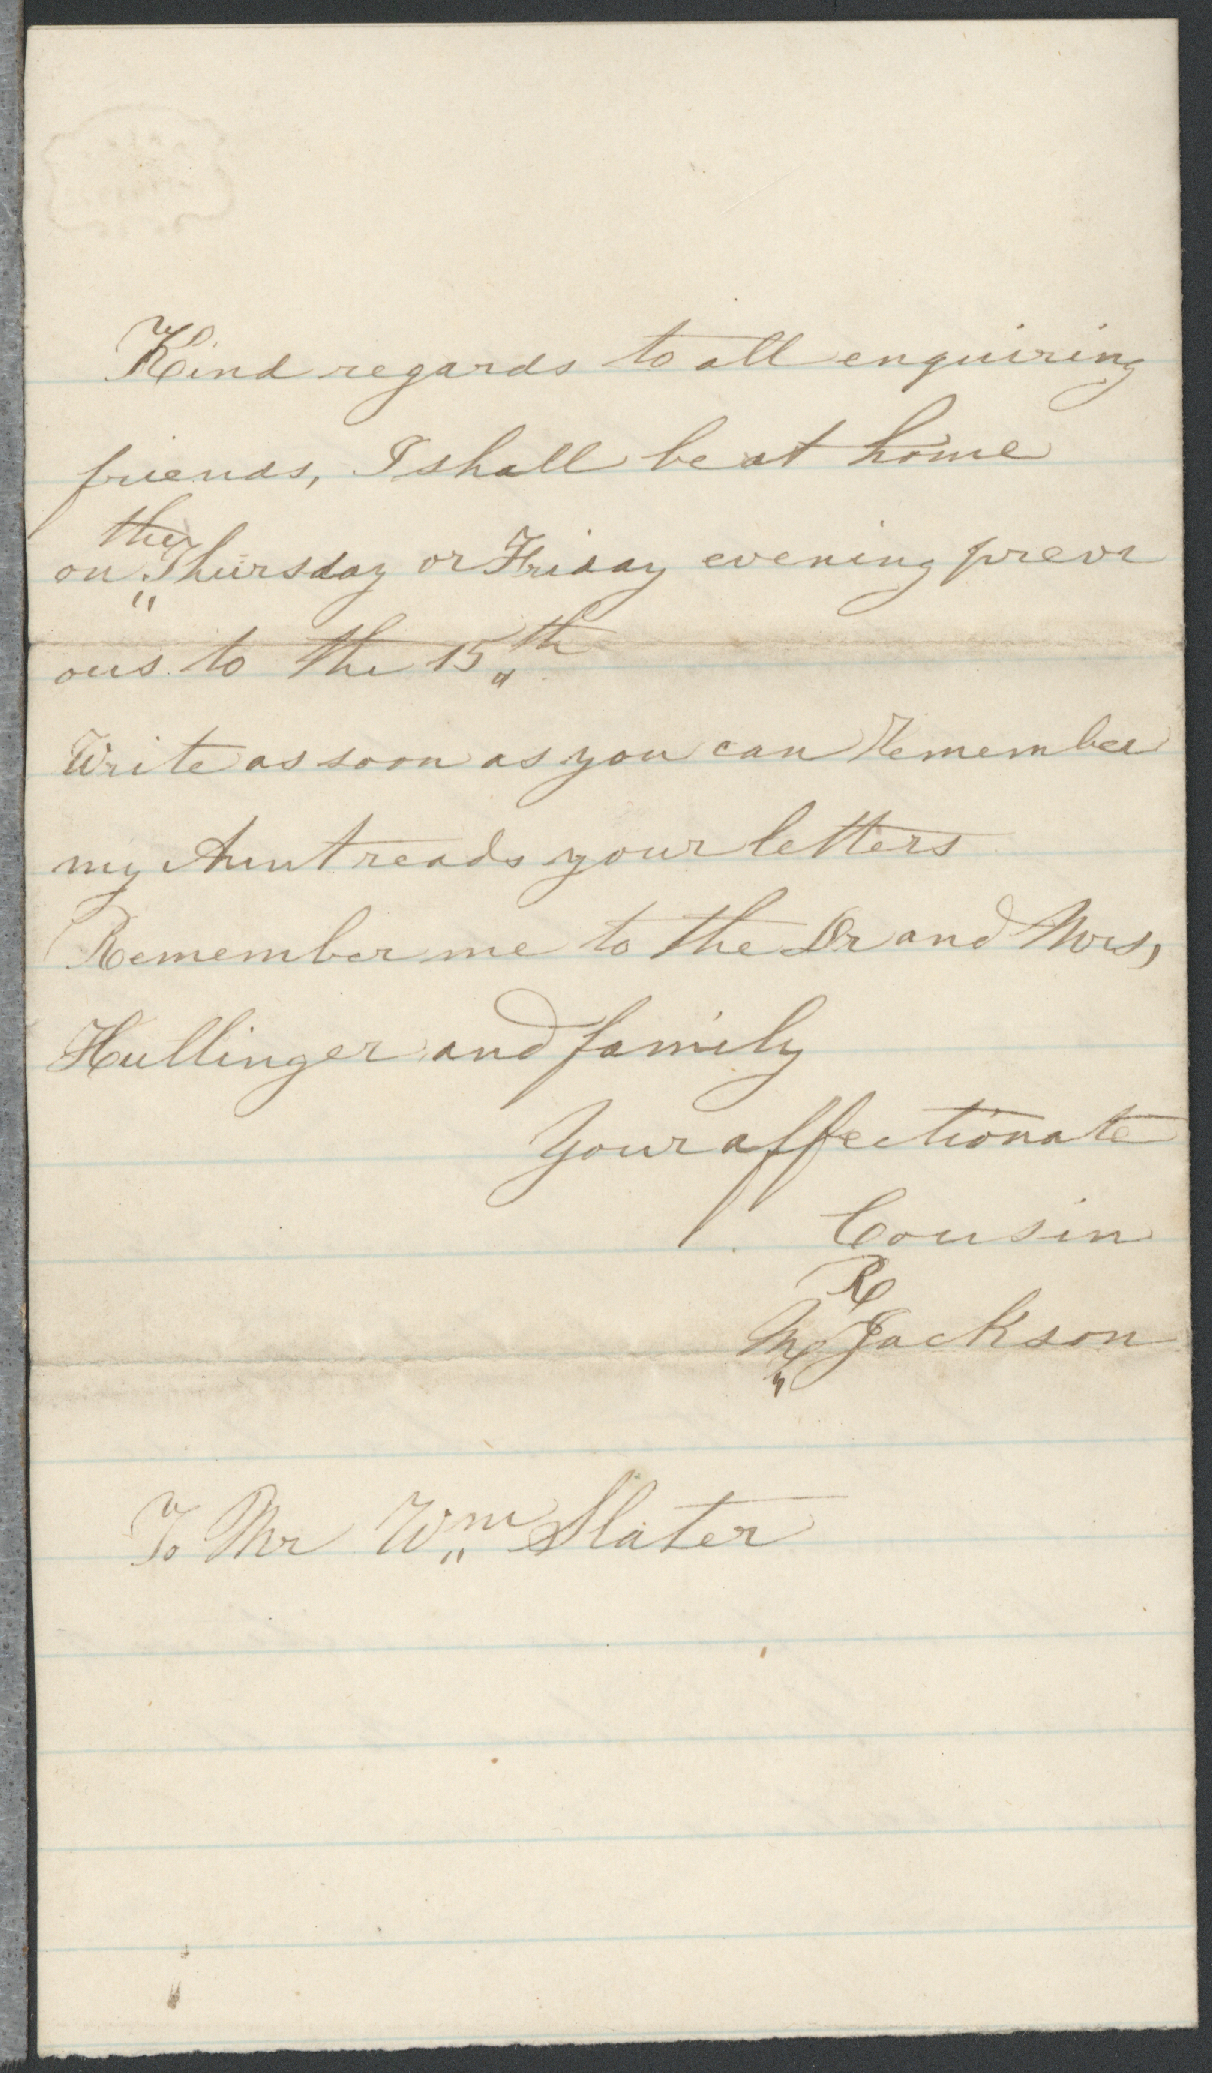 Kind regards to all enquiring
friends, I shall be at home
on the Thursday or Friday evening previ
ous to the 15th
Write as soon as you can Remember
my Aunt reads your letters
Remember me to the Dr and Mrs,
Hullinger and family
Your affectionate
Cousin
M R Jackson
To Mr Wm Slater